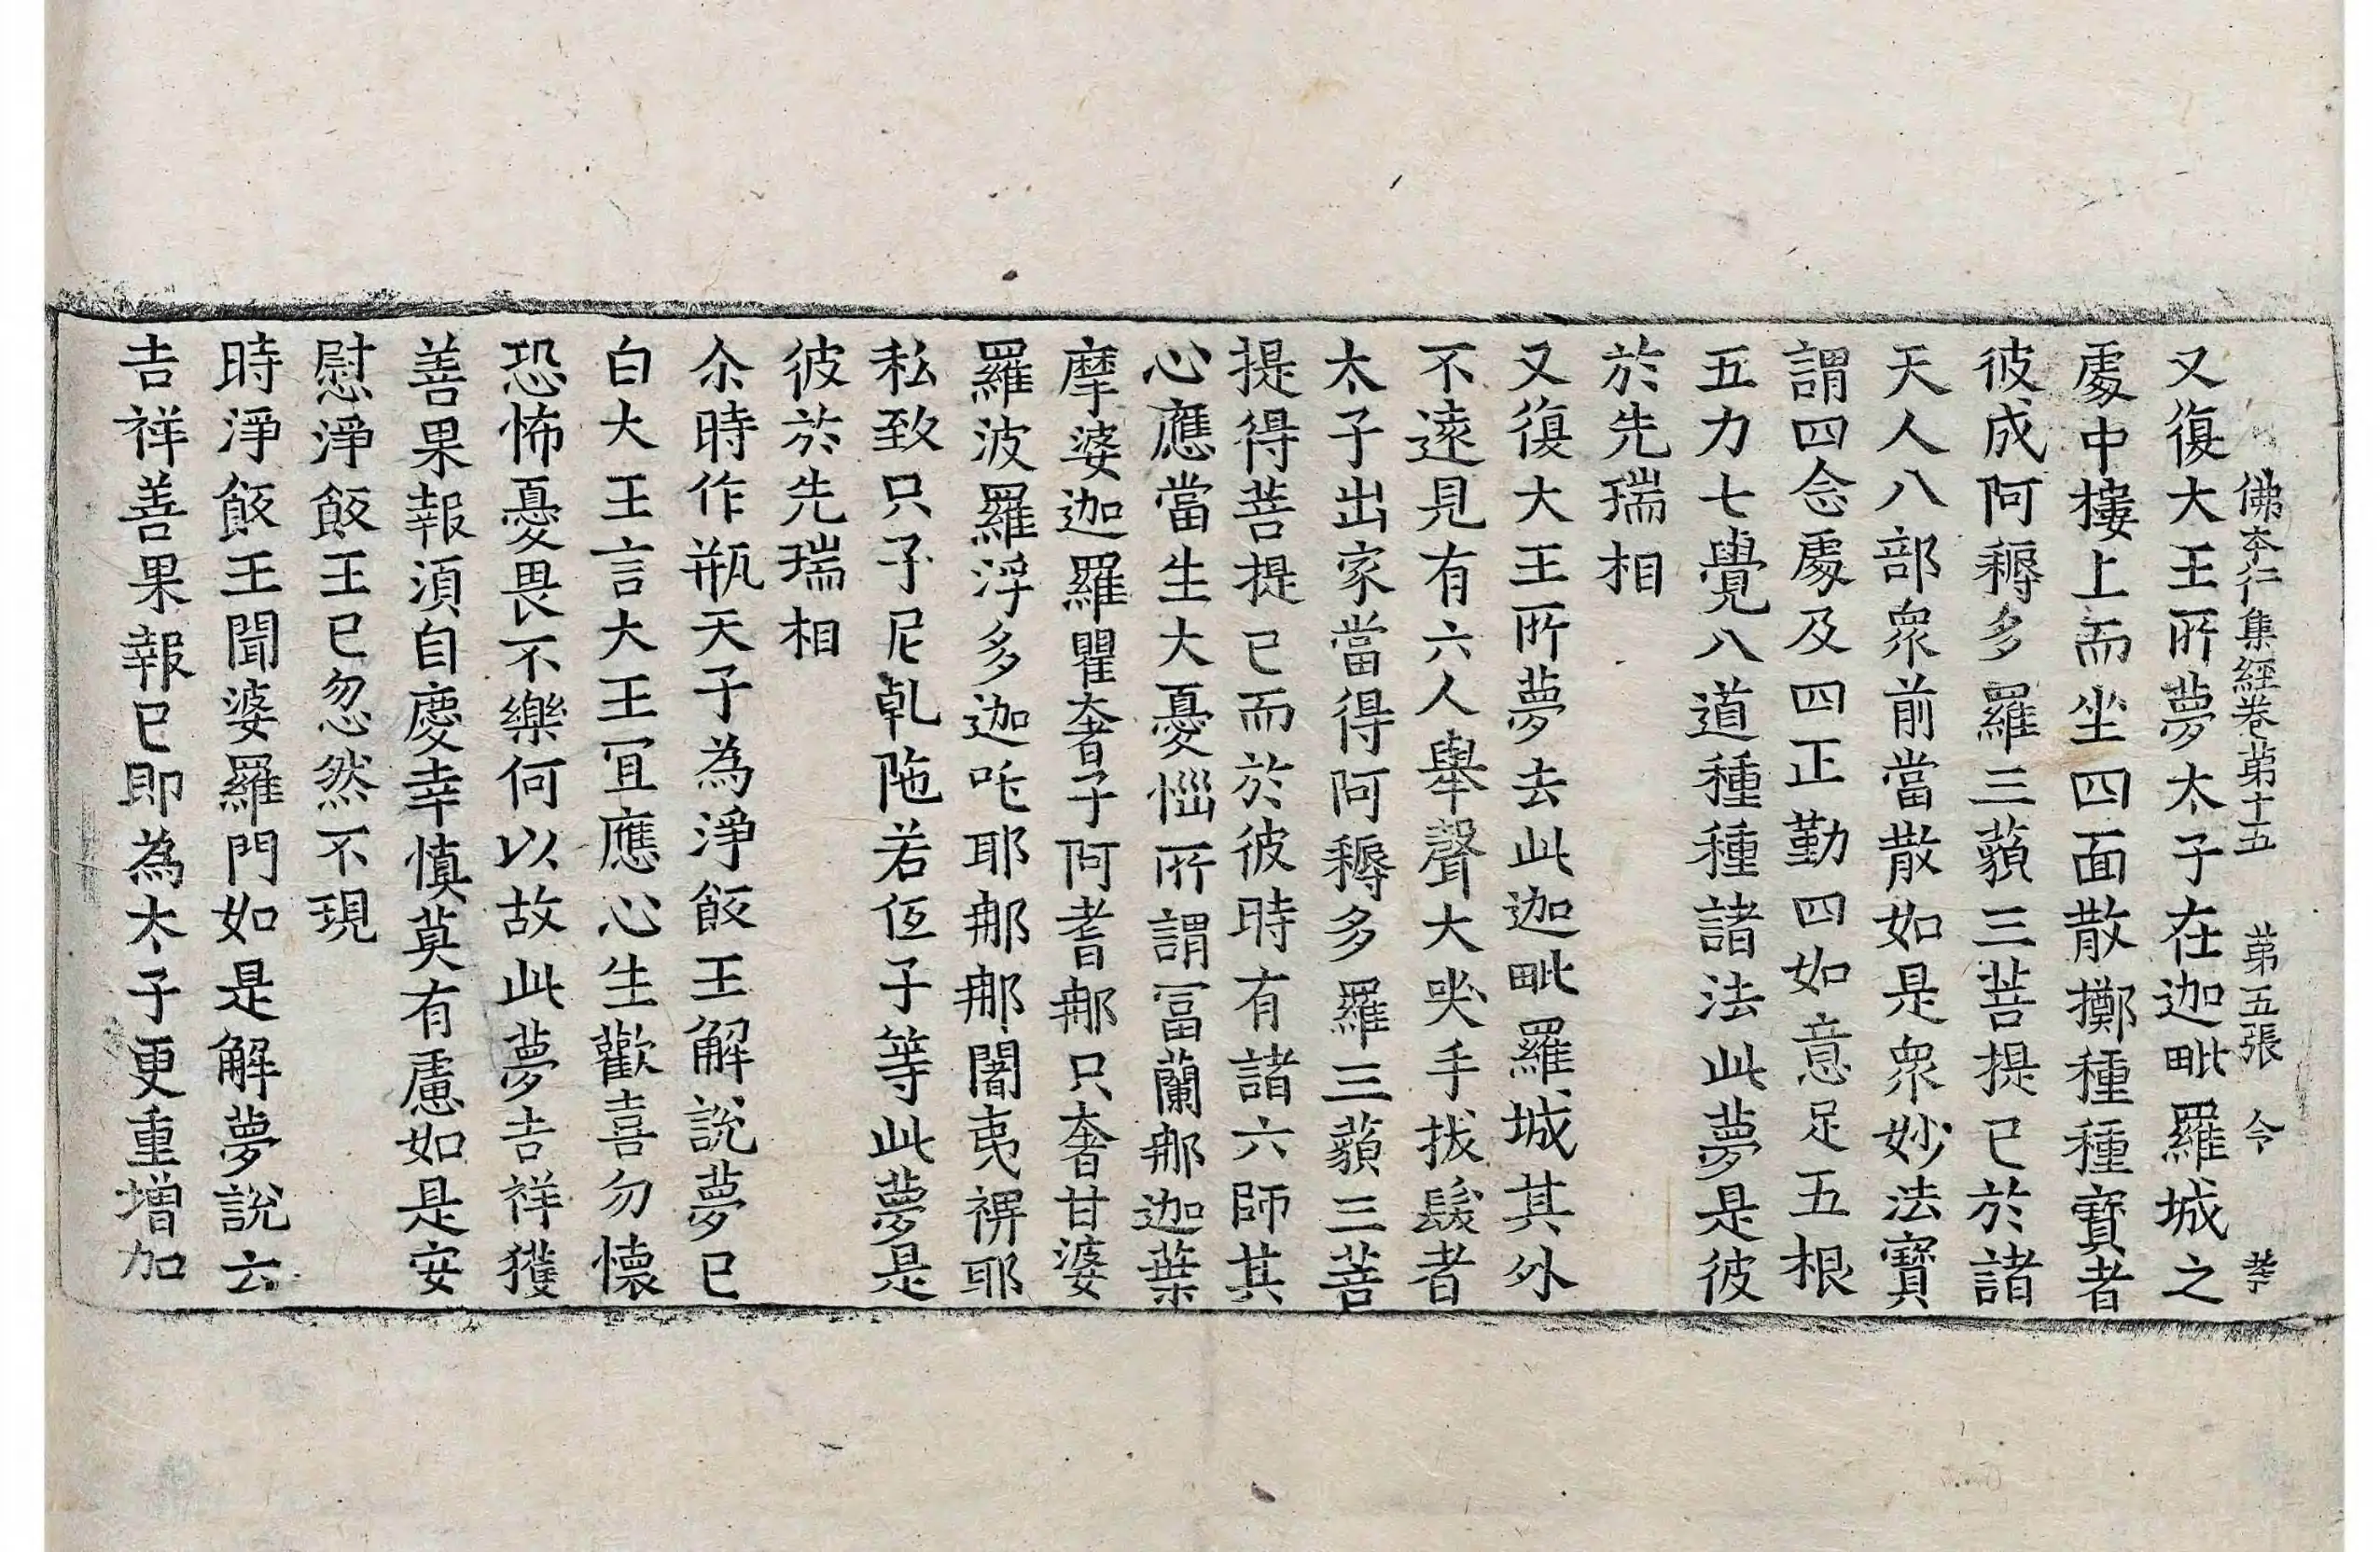 佛本行集經卷苐十五　苐五張　令　孝
又復大王所夢太子在迦毗羅城之
處中摟上而坐四面散擲種種寶者
彼成阿耨多羅三藐三菩提已於諸
天人八部衆前當散如是衆妙法寶
謂四念處及四正勤四如意足五根
五力七覺八道種種諸法此夢是彼
於先瑞相
又復大王所夢去此迦毗羅城其外
不遠見有六人舉聲大哭手拔髮者
太子出家當得阿耨多羅三藐三菩
提得菩提已而於彼時有諸六師其
心應當生大憂惱所謂冨蘭那迦葉
摩婆迦羅瞿奢子阿耆那只奢甘婆
羅波羅浮多迦吒耶那那闍夷裨耶
私致只子尼乹陁若伍子等此夢是
彼於先瑞相
尒時作瓶天子為淨飯王解說夢已
白大王言大王宜應心生歡喜勿懷
恐怖憂畏不樂何以故此夢吉祥獲
善果報湏自慶幸慎莫有慮如是安
慰淨飯王已忽然不現
時淨飯王聞婆羅門如是解夢說云
吉祥善果報已即為太子更重增加